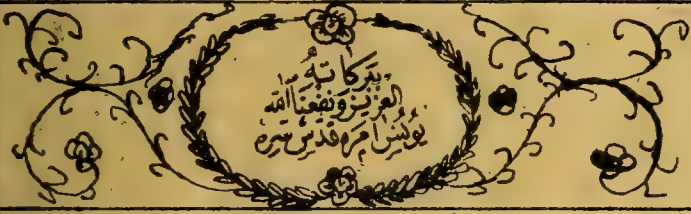 ببركاته
العزيز ونفعنا الله
يونس امره قدس سره